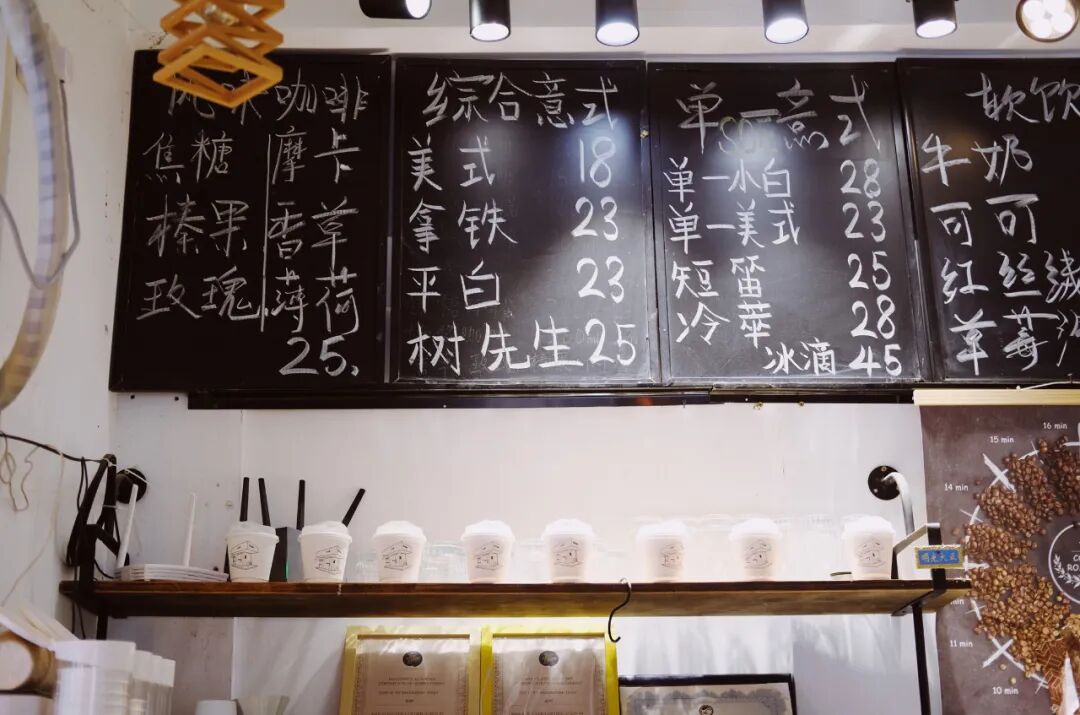 风味咖啡
焦糖 摩卡
榛果 香草
玫瑰 薄荷
25.
综合意式
美式 18
拿铁 23
平白 23
树先生 25
单一意式
单一小白 28
单一美式 23
短笛 25
冷萃 28
冰滴 45
软饮
牛奶
可可
红丝绒
草莓
16 min
15 min
14 min
11 min
10 min